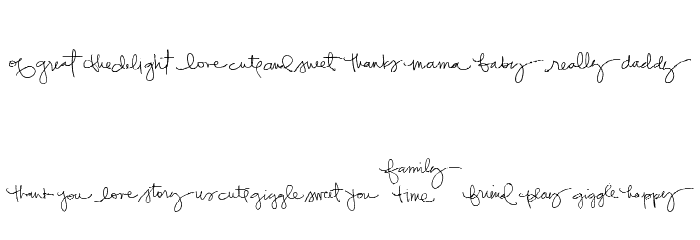 of great the delight love cute and sweet thanks mama baby really daddy
thank you love story us cute giggle sweet you family time friend play giggle happy